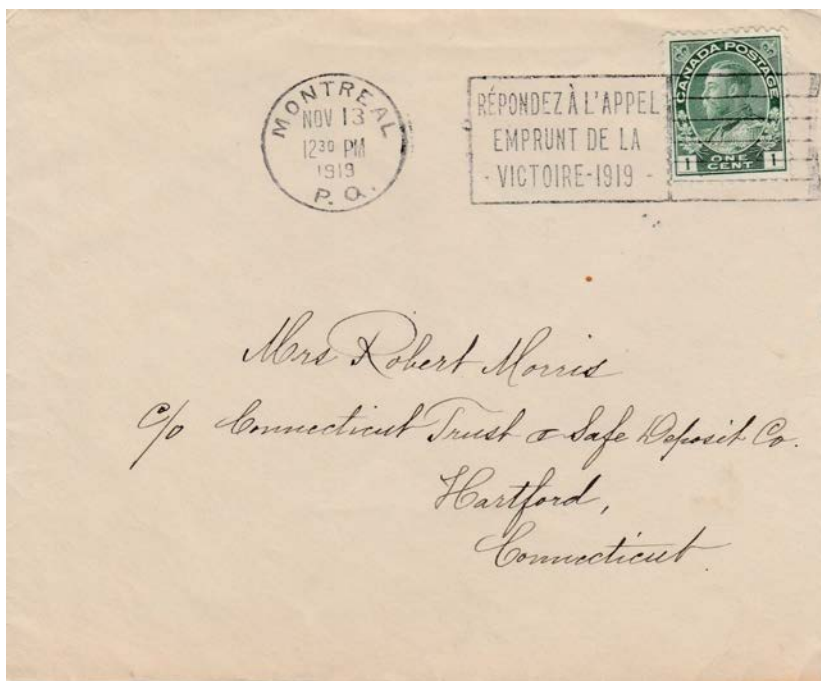 MONTREAL
NOV 13
12 30 PM
1919
P. Q.
RÉPONDEZ À L'APPEL
EMPRUNT DE LA
- VICTOIRE - 1919 -
CANADA POSTAGE
1 ONE CENT 1
Mrs Robert Morris
c/o Connecticut Trust & Safe Deposit Co.
Hartford,
Connecticut.